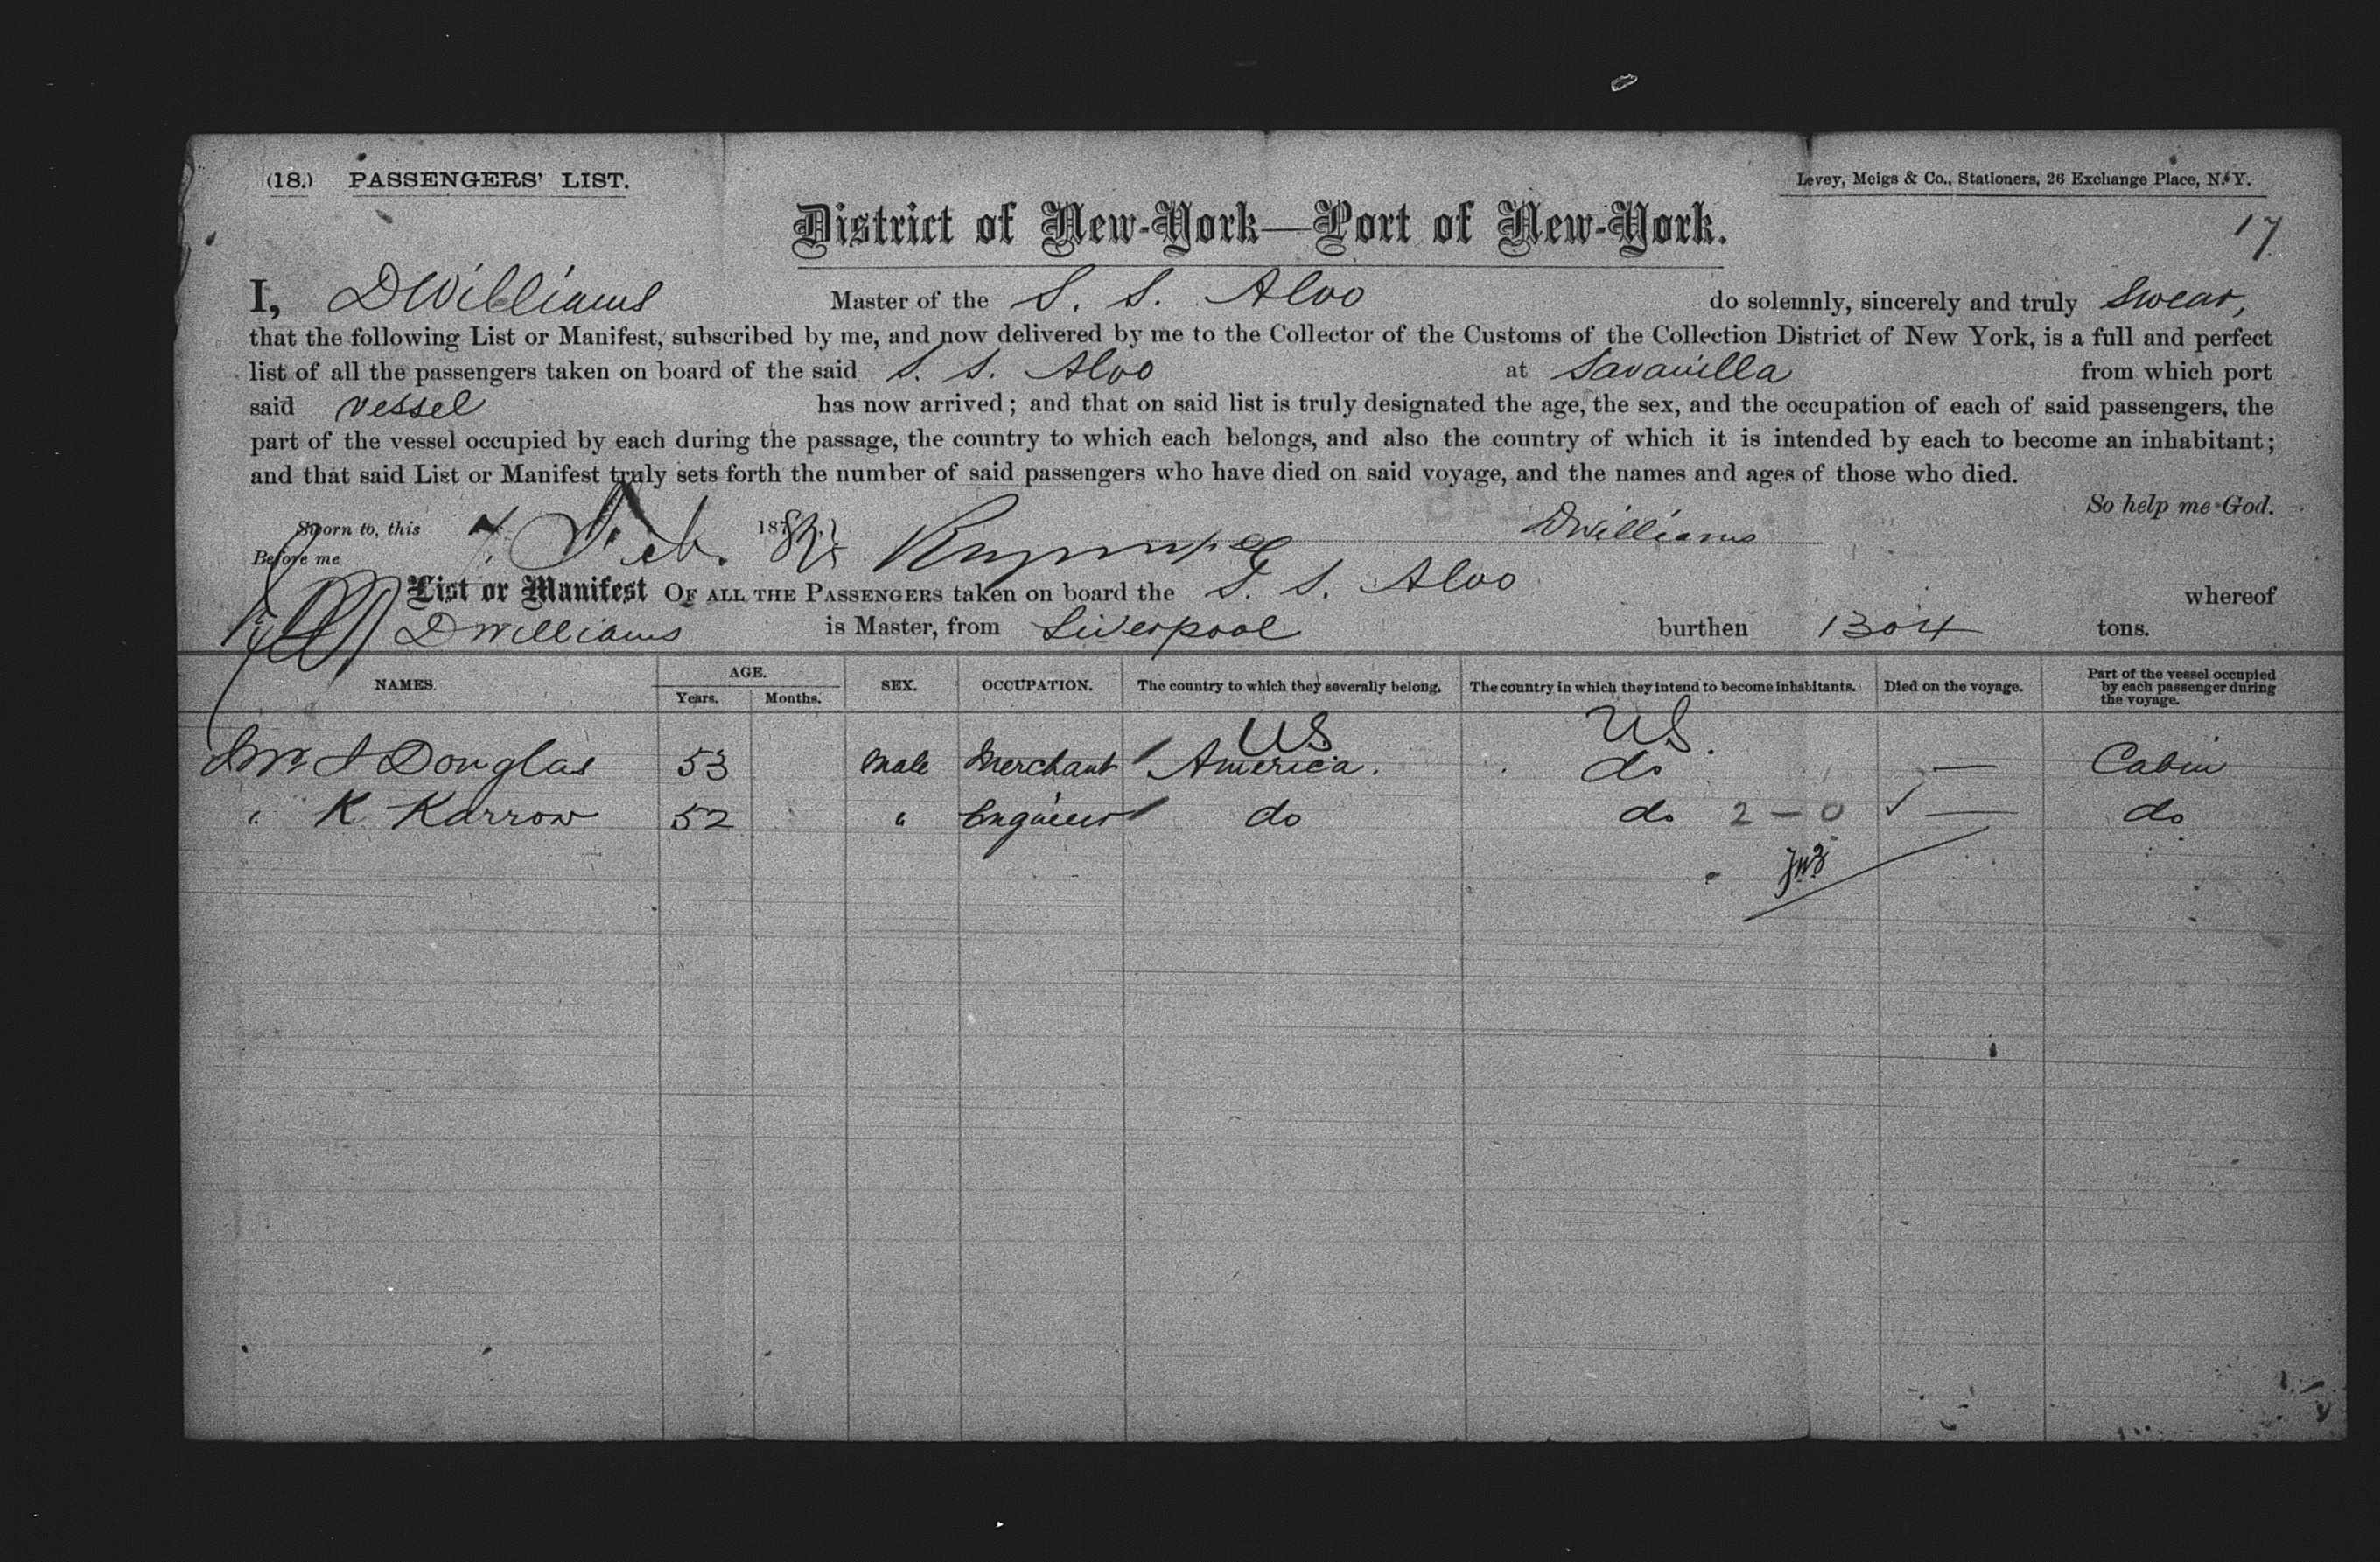 (18.) PASSENGERS' LIST. Levey, Meigs & Co., Stationers, 26 Exchange Place, N.Y.
District of New-York—Port of New-York.
17
I, D Williams Master of the S. S. Alvo do solemnly, sincerely and truly swear,
that the following List or Manifest, subscribed by me, and now delivered by me to the Collector of the Customs of the Collection District of New York, is a full and perfect
list of all the passengers taken on board of the said S. S. Alvo at Savanilla from which port
said vessel has now arrived; and that on said list is truly designated the age, the sex, and the occupation of each of said passengers, the
part of the vessel occupied by each during the passage, the country to which each belongs, and also the country of which it is intended by each to become an inhabitant;
and that said List or Manifest truly sets forth the number of said passengers who have died on said voyage, and the names and ages of those who died.
So help me God.
Sworn to, this 7 Feb. 187 D Williams
Before me
List or Manifest OF ALL THE PASSENGERS taken on board the S. S. Alvo whereof
D Williams is Master, from Liverpool burthen 1304 tons.
NAMES. AGE. Years. Months. SEX. OCCUPATION. The country to which they severally belong. The country in which they intend to become inhabitants. Died on the voyage. Part of the vessel occupied by each passenger during the voyage.
US US.
Mr J Douglas 53 Male Merchant America. do — Cabin
" K Karrow 52 " Engineer do do 2 – 0 ✓ — do